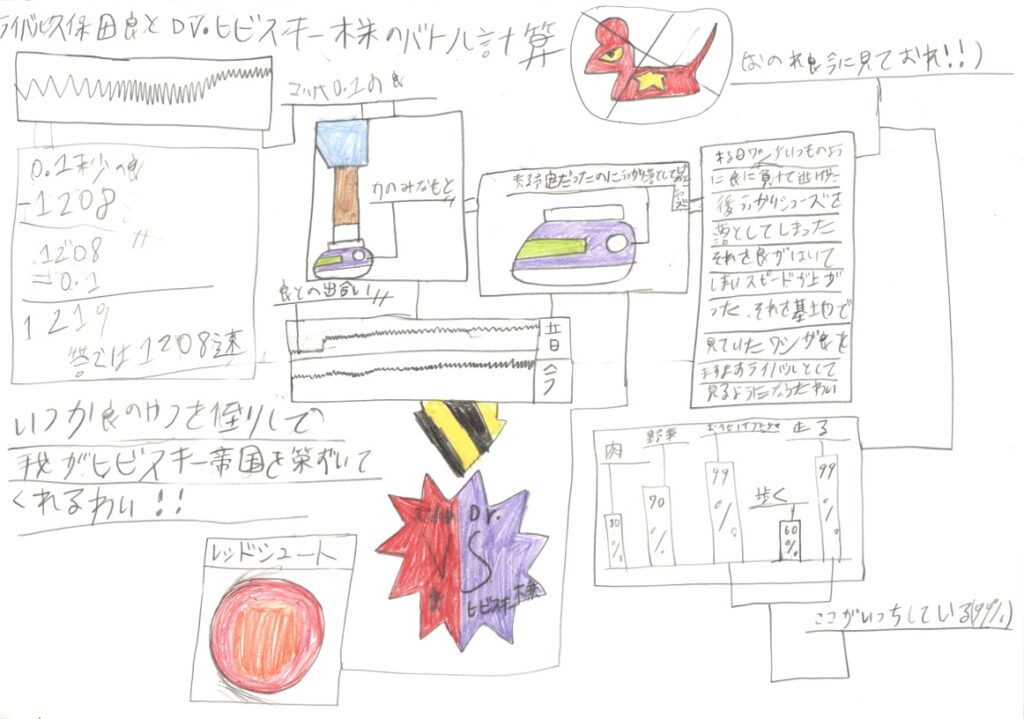 ライバル久保田良とDr.ヒビスキー株のバトル計算
おのれ良今に見ておれ!!)
0.1の良
0.1秒の良
-1208
1208
=0.1
1219
答では1208速
力のみなもと
良との出合い
昔
今
来る日ワシがいつものよう
に良に負けて逃げた
後うっかりシューズを
落としてしまった
それを良がはいて
しまいスピードが上が
った、それを基地で
見ていたワシが良を
ますますライバルとして
見るようになったわい
いつか良のやつを倒りして
我がヒビスキー帝国を築ずいて
くれるわい!!
肉
野菜
走る
歩く
80%
70%
99%
60%
99%
レッドシュート
Dr.
VS
良
ヒビスキー株
ここがいっちしている(99%)